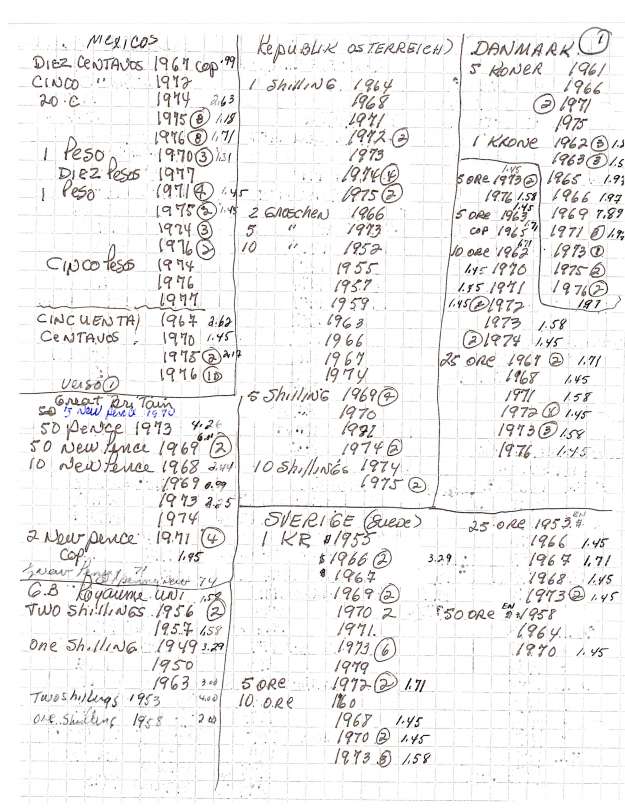 MEXICOS
DIEZ CENTAVOS 1967 COP .99
CINCO " 1972
20 ¢ 1974 2.63
1975 (8) 1.18
1976 (8) 1.71
1 Peso 1970 (3) 1.31
DIEZ Pesos 1977
1 Peso 1971 (4) 1.45
1975 (2) 1.45
1974 (3)
1976 (2)
CINCO Pesos 1974
1976
1977
CINCUENTA 1967 2.62
CENTAVOS 1970 1.45
1975 (2) 2.17
1976 (10)
VERSO (1)
Great Britain
5 New pence 1970
50 pence 1973 4.26
50 New Pence 1969 (2)
10 New Pence 1968 2.44
1969 0.99
1973 2.65
1974
2 New pence 1971 (4)
COP 1.45
G.B Royaume UNI 1.58
TWO Shillings 1956 (2)
1957 1.58
one Shilling 1949 3.29
1950
1963 3.00
Two shillings 1953 4.00
one Shilling 1958 2.00
Republik OSTERREICH)
1 Shilling 1964
1968
1971
1972 (2)
1973
1974 (4)
1975 (2)
2 GROSCHEN 1966
5 " 1973
10 " 1952
1955
1957
1959
1963
1966
1967
1974
5 Shilling 1969 (2)
1970
1971
1974 (2)
10 Shillings 1974
1975 (2)
DANMARK (1)
5 KONER 1961
1966
(2) 1971
1975
1 KRONE 1962 (3)
1963 (3)
1965 1.97
1966 1.97
1969 7.89
1971
1973
1975
1976 (2)
197
1.45
5 ORE 1973 (2)
1976 1.58
1.45
5 ORE 1963
COP 1965
10 ORE 1962
1.45 1970
1.45 1971
1.45 (2) 1972
1973 1.58
(2) 1974 1.45
25 ORE 1967 (2) 1.71
1968 1.45
1971 1.58
1972 (4) 1.45
1973 (3) 1.58
1976 1.45
SVERIGE (Suede)
1 KR $1955
$1966 (2) 3.29
$1967
1969 (2)
1970 2
1971
1973 (6)
1979
5 ORE 1972 (2) 1.71
10 ORE 160
1968 1.45
1970 (2) 1.45
1973 (3) 1.58
25 ORE 1953 EN #
1966 1.45
1967 1.71
1968 1.45
1973 (2) 1.45
50 ORE EN 1958
1964
1970 1.45